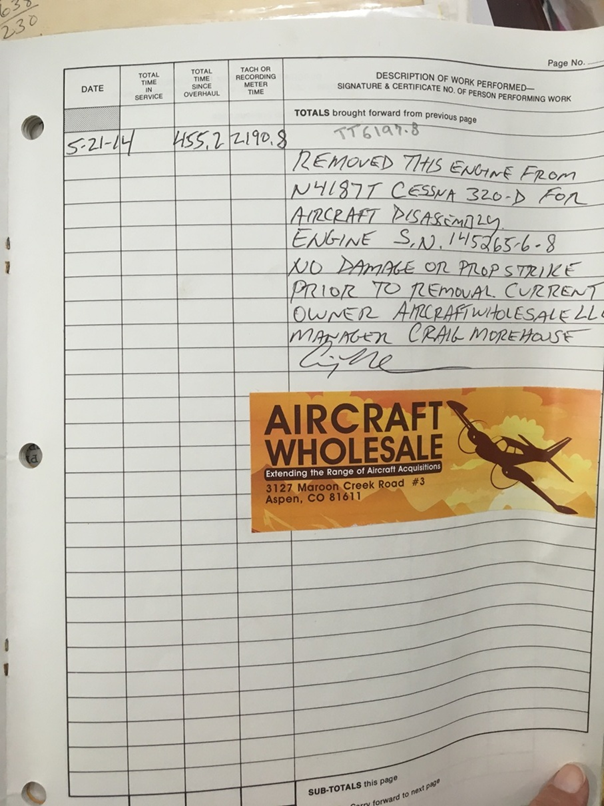 638
230
Page No.
DATE
TOTAL TIME IN SERVICE
TOTAL TIME SINCE OVERHAUL
TACH OR RECORDING METER TIME
DESCRIPTION OF WORK PERFORMED—
SIGNATURE & CERTIFICATE NO. OF PERSON PERFORMING WORK
TOTALS brought forward from previous page
TT6197.8
5-21-14 455.2 2190.8
REMOVED THIS ENGINE FROM
N4187T CESSNA 320-D FOR
AIRCRAFT DISASSEMBLY
ENGINE S.N. 145265-6-8
NO DAMAGE OR PROP STRIKE
PRIOR TO REMOVAL. CURRENT
OWNER AIRCRAFTWHOLESALE LLC
MANAGER CRAIG MOREHOUSE
AIRCRAFT
WHOLESALE
Extending the Range of Aircraft Acquisitions
3127 Maroon Creek Road #3
Aspen, CO 81611
SUB-TOTALS this page
Carry forward to next page